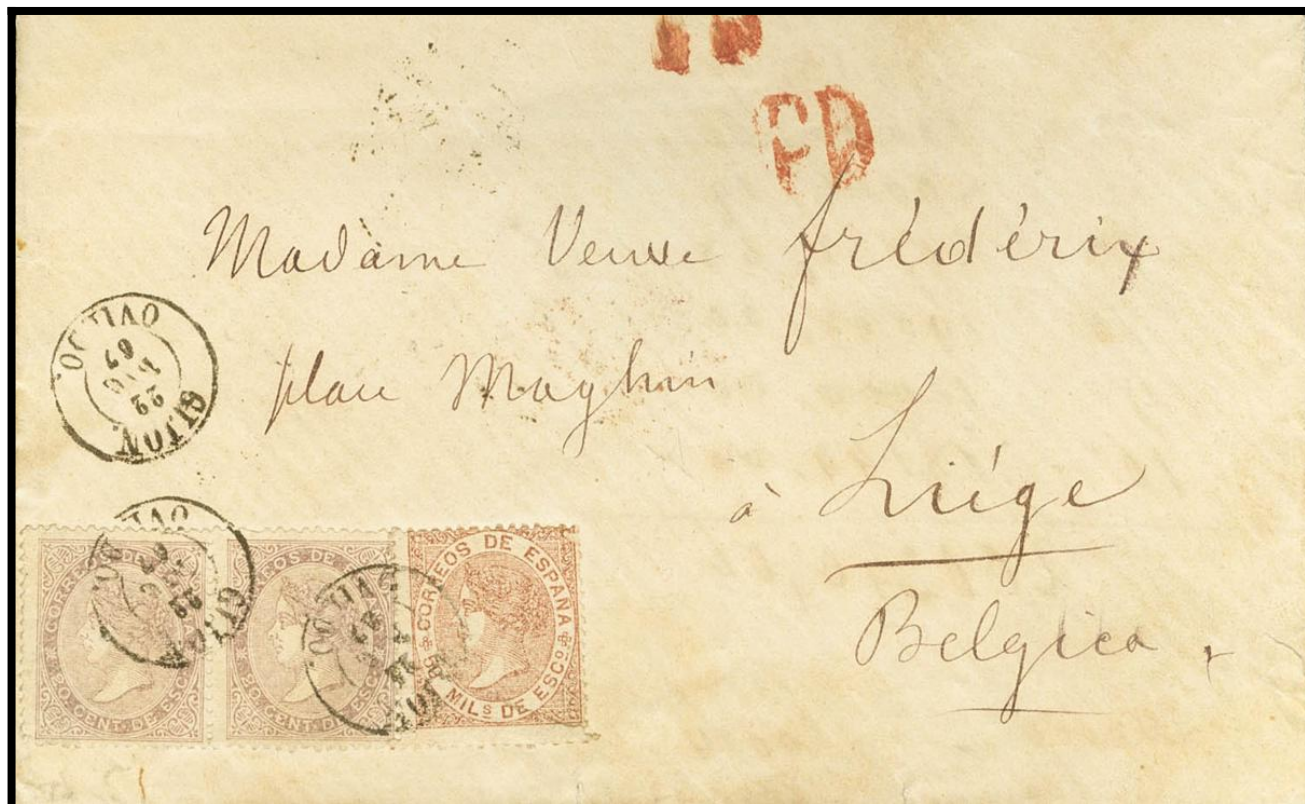 PD
Madame Veuve frédérix
place Maghin
à Liége
Belgica
GIJON.
22
AGO
67
OVIEDO.
CORREOS DE ESPAÑA
20 CENT. DE ESCO
CORREOS DE ESPAÑA
20 CENT. DE ESCO
CORREOS DE ESPAÑA
MILS DE ESCO.